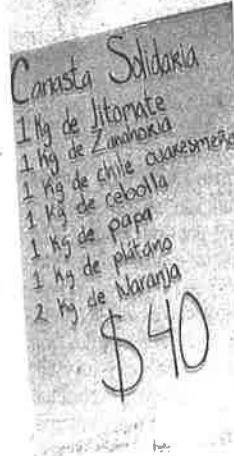 Canasta Solidaria
1 Kg de Jitomate
1 Kg de Zanahoria
1 Kg de chile cuaresmeño
1 Kg de cebolla
1 Kg de papa
1 Kg de plátano
2 Kg de Naranja
$40